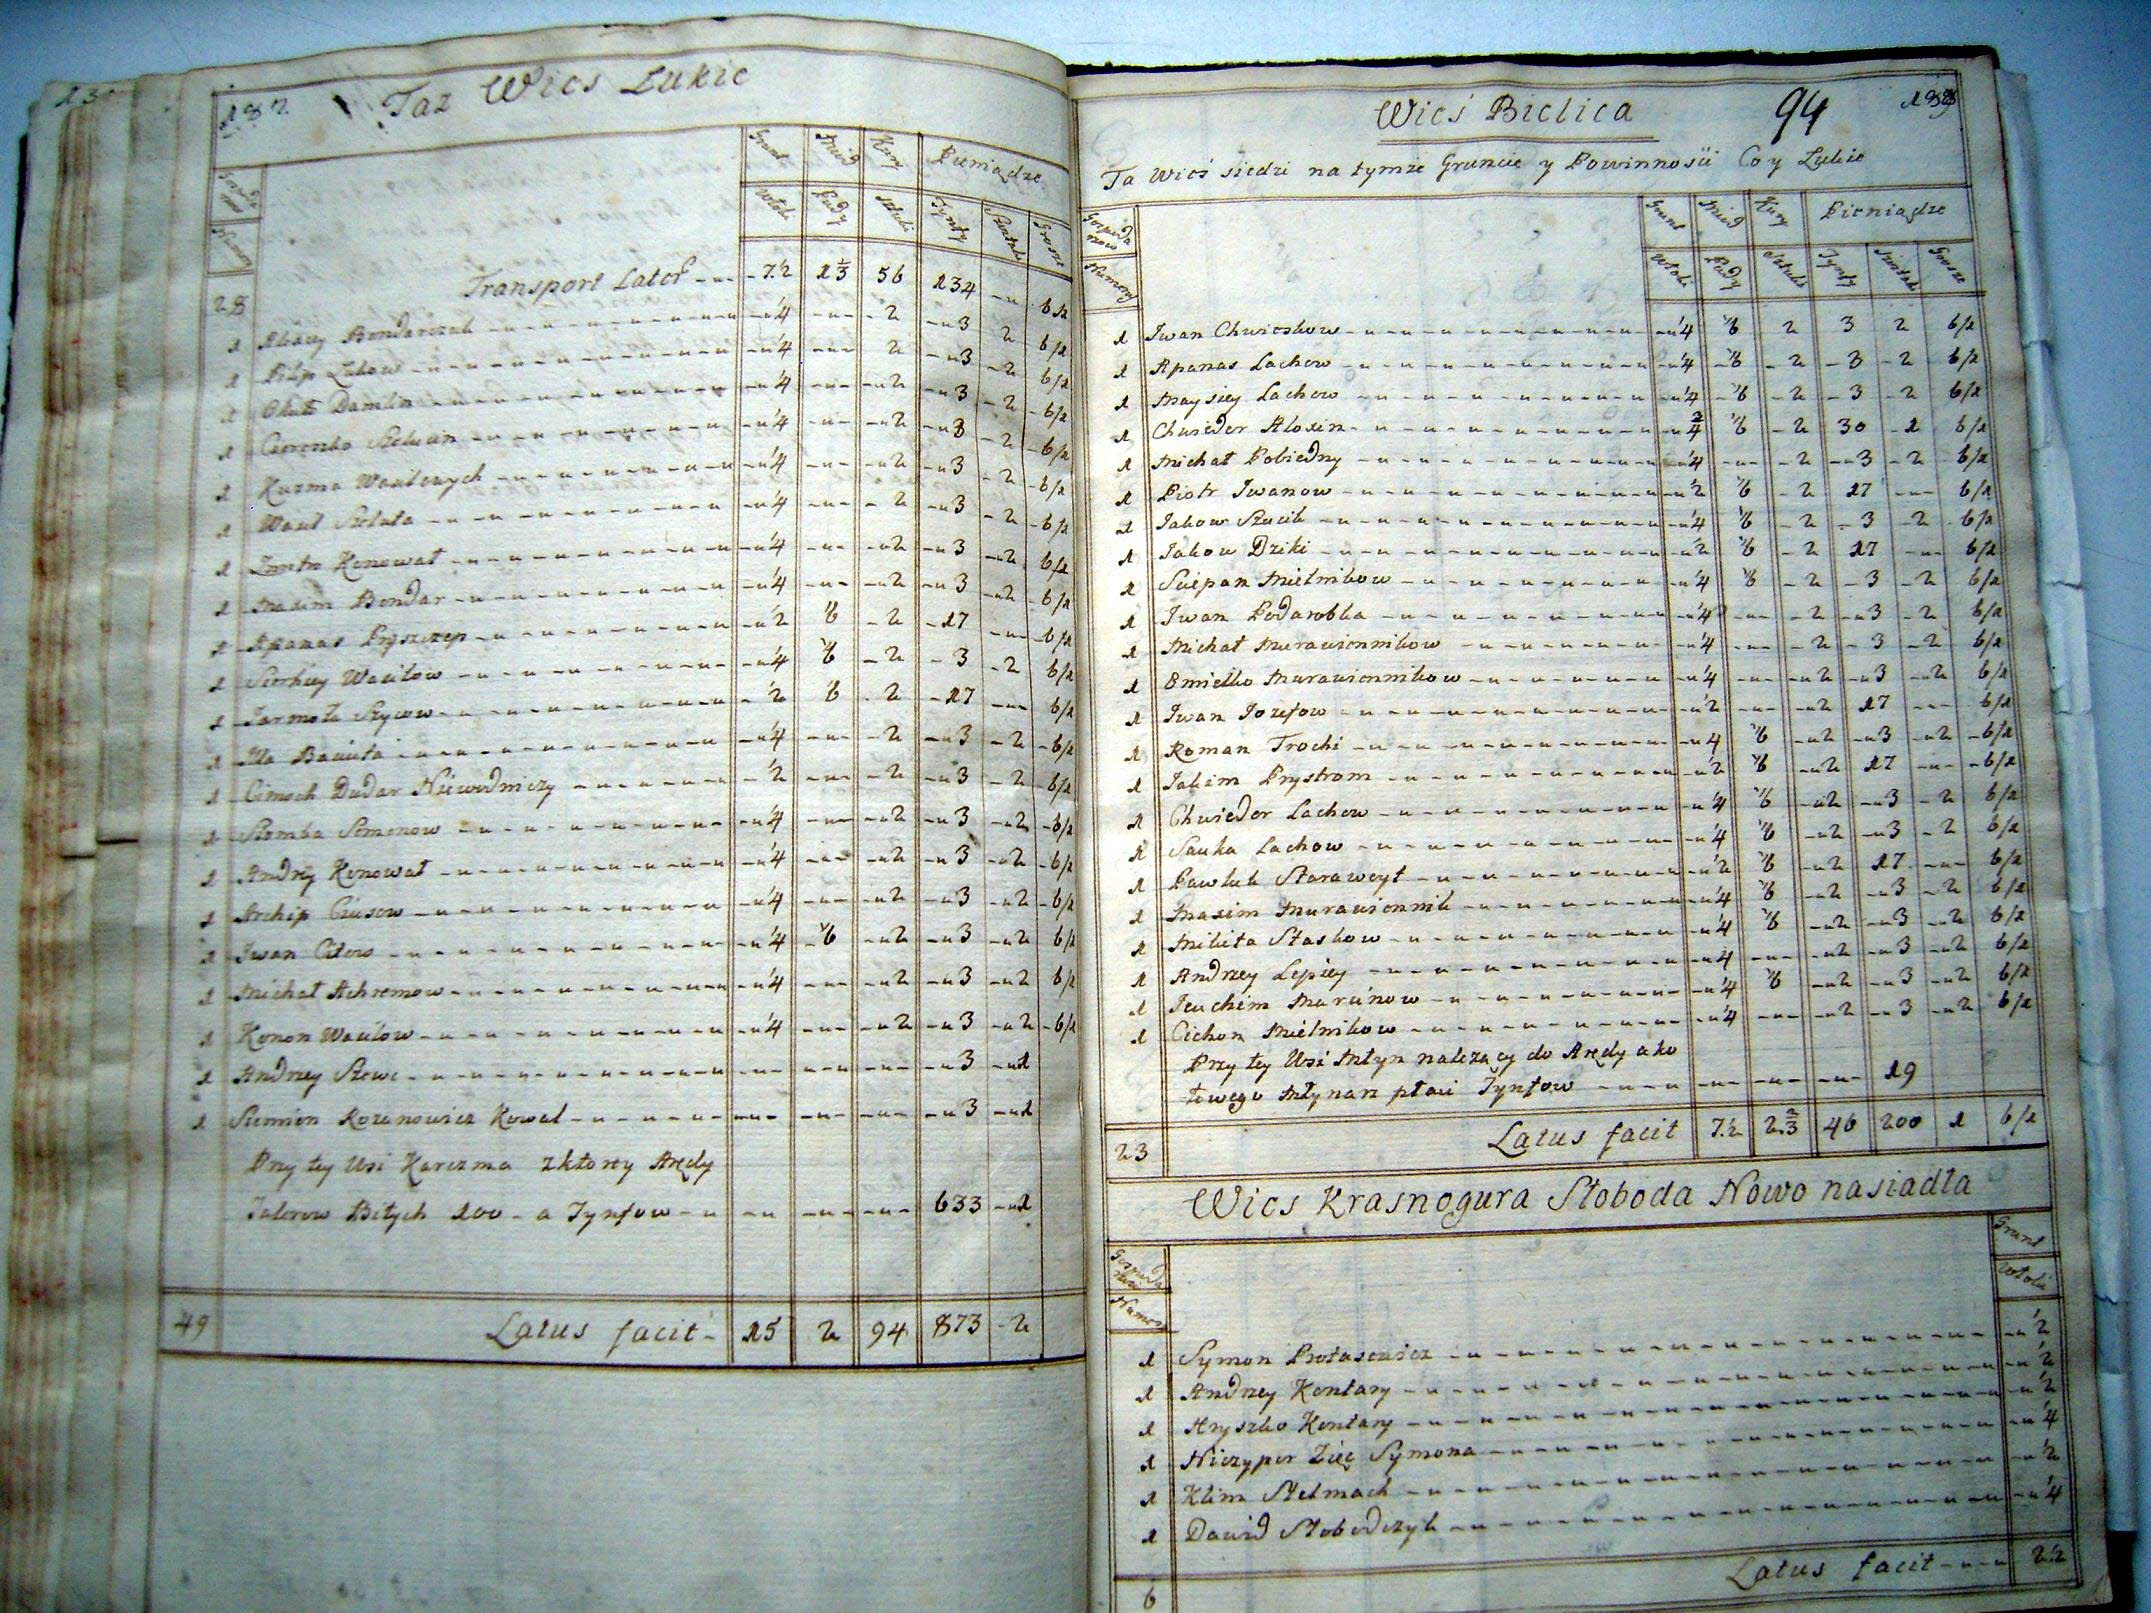 187
Taz Wies Łukie
Gospodarzow Grunt Miod Kury Pieniądze
Numery Włoki Pudy Sztuki Tynfy Szostaki Grosze
28 Transport Later 7.½ 1⅓ 56 134
1 Alexey Bondarczuk ¼ 2 3 2 6/2
1 Filip Łukow ¼ 2 3 2 6/2
1 Danilin ¼ 2 3 2 6/2
1 ¼ 2 3 2 6/2
1 Kuzma Wasilowych ¼ 2 3 2 6/2
1 Wasil Szoluta ¼ 2 3 2 6/2
1 Zmitro Konował ¼ 2 3 2 6/2
1 Maxim Bondar ¼ 2 3 2 6/2
1 Apanas Pryszczep ½ ⅙ 2 17 6/2
1 Sierhiey Wasilow ¼ ⅙ 2 3 2 6/2
1 Jarmoła ½ ⅙ 2 17 6/2
1 Ila ¼ 2 3 2 6/2
1 Cimoch Dudar Niewodniczy ½ 2 3 2 6/2
1 Siomka Semenow ¼ 2 3 2 6/2
1 Andrey Konował ¼ 2 3 2 6/2
1 Archip ¼ 2 3 2 6/2
1 Iwan Citow ¼ ⅙ 2 3 2 6/2
1 Michał Achremow ¼ 2 3 2 6/2
1 Konon Wasilow ¼ 2 3 2 6/2
1 Andrzey Szewc 3 1
1 Siemien Kozanowicz Kowal 3 1
Przy tey Wsi Karczma z ktorey Arędy
Talerow Bitych 100 a Tynfow 633 1
49 Latus facit 15 2 94 873 2
Wieś Bielica 94 188
Ta Wieś siedzi na tymże Gruncie y Powinności Co y Łukie
Gospodarzow Grunt Miod Kury Pieniądze
Numery Włoki Pudy Sztuki Tynfy Szostaki Grosze
1 Iwan Chwieskow ¼ ⅙ 2 3 2 6/2
1 Apanas Lachow ¼ ⅙ 2 3 2 6/2
1 Maysiey Lachow ¼ ⅙ 2 3 2 6/2
1 Chwiedor Aloxin ¾ ⅙ 2 30 1 6/2
1 Michał Pobiedny ¼ 2 3 2 6/2
1 Piotr Iwanow ½ ⅙ 2 17 6/2
1 Jakow ¼ ⅙ 2 3 2 6/2
1 Jakow Dziki ½ ⅙ 2 17 6/2
1 Sciepan Mielnikow ¼ ⅙ 2 3 2 6/2
1 Iwan Podarobka ¼ 2 3 2 6/2
1 Michał Murawiennikow ¼ 2 3 2 6/2
1 Omielko Murawiennikow ¼ 2 3 2 6/2
1 Iwan Jozefow ½ 2 17 6/2
1 Roman Trochi ¼ ⅙ 2 3 2 6/2
1 Jakim Prystrom ½ ⅙ 2 17 6/2
1 Chwiedor Lachow ¼ ⅙ 2 3 2 6/2
1 Sauka Lachow ¼ ⅙ 2 3 2 6/2
1 Pawluk Starawoyt ½ ⅙ 2 17 6/2
1 Maxim Murawiennik ¼ ⅙ 2 3 2 6/2
1 Mikita Staskow ¼ ⅙ 2 3 2 6/2
1 Andrzey Lepiey ¼ 2 3 2 6/2
1 Jeuchim Marcinow ¼ ⅙ 2 3 2 6/2
1 Cichon Mielnikow ¼ 2 3 2 6/2
Przy tey Wsi Młyn należący do Arędy a ko
łowego Młynarz płaci Tynfow 19
23 Latus facit 7.½ 2⅔ 46 200 1 6/2
Wies Krasnogura Słoboda Nowo nasiadła
Gospodarzow Grunt
Numery Włoki
1 Symon Protasewicz ½
1 Andrzey Kontary ½
1 Hryszko Kontary ½
1 Niczyper Zięć Symona ¼
1 Klim Stelmach ½
1 Dawid Słobodczyk ¼
6 Latus facit 2.½